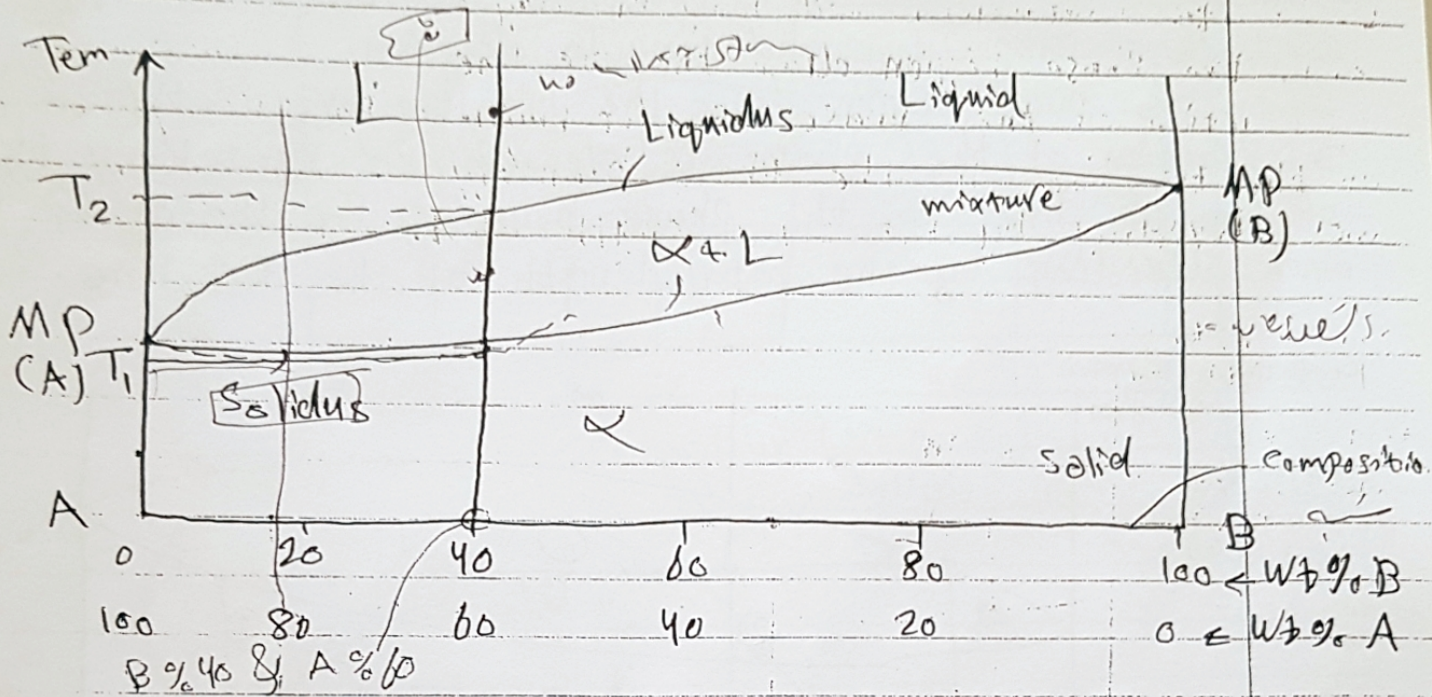 Tem
Liquid
Liquidus
T2
mixture
MP
(B)
α + L
MP
(A) T1
Solidus
α
Solid
compositio
A
B
0 20 40 60 80 100 ← Wt % B
100 80 60 40 20 0 ← Wt % A
B %40 & A %60